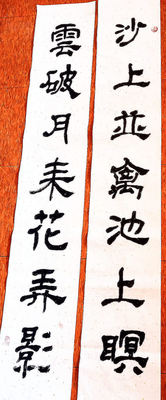 沙上並禽池上暝
雲破月来花弄影